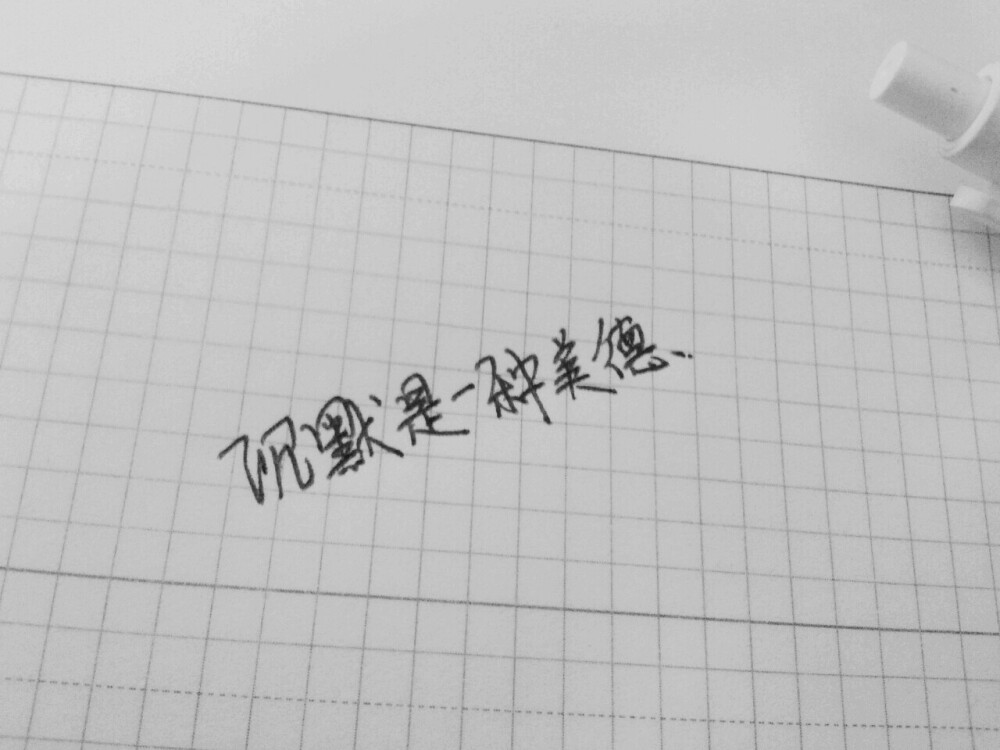 沉默是一种美德...